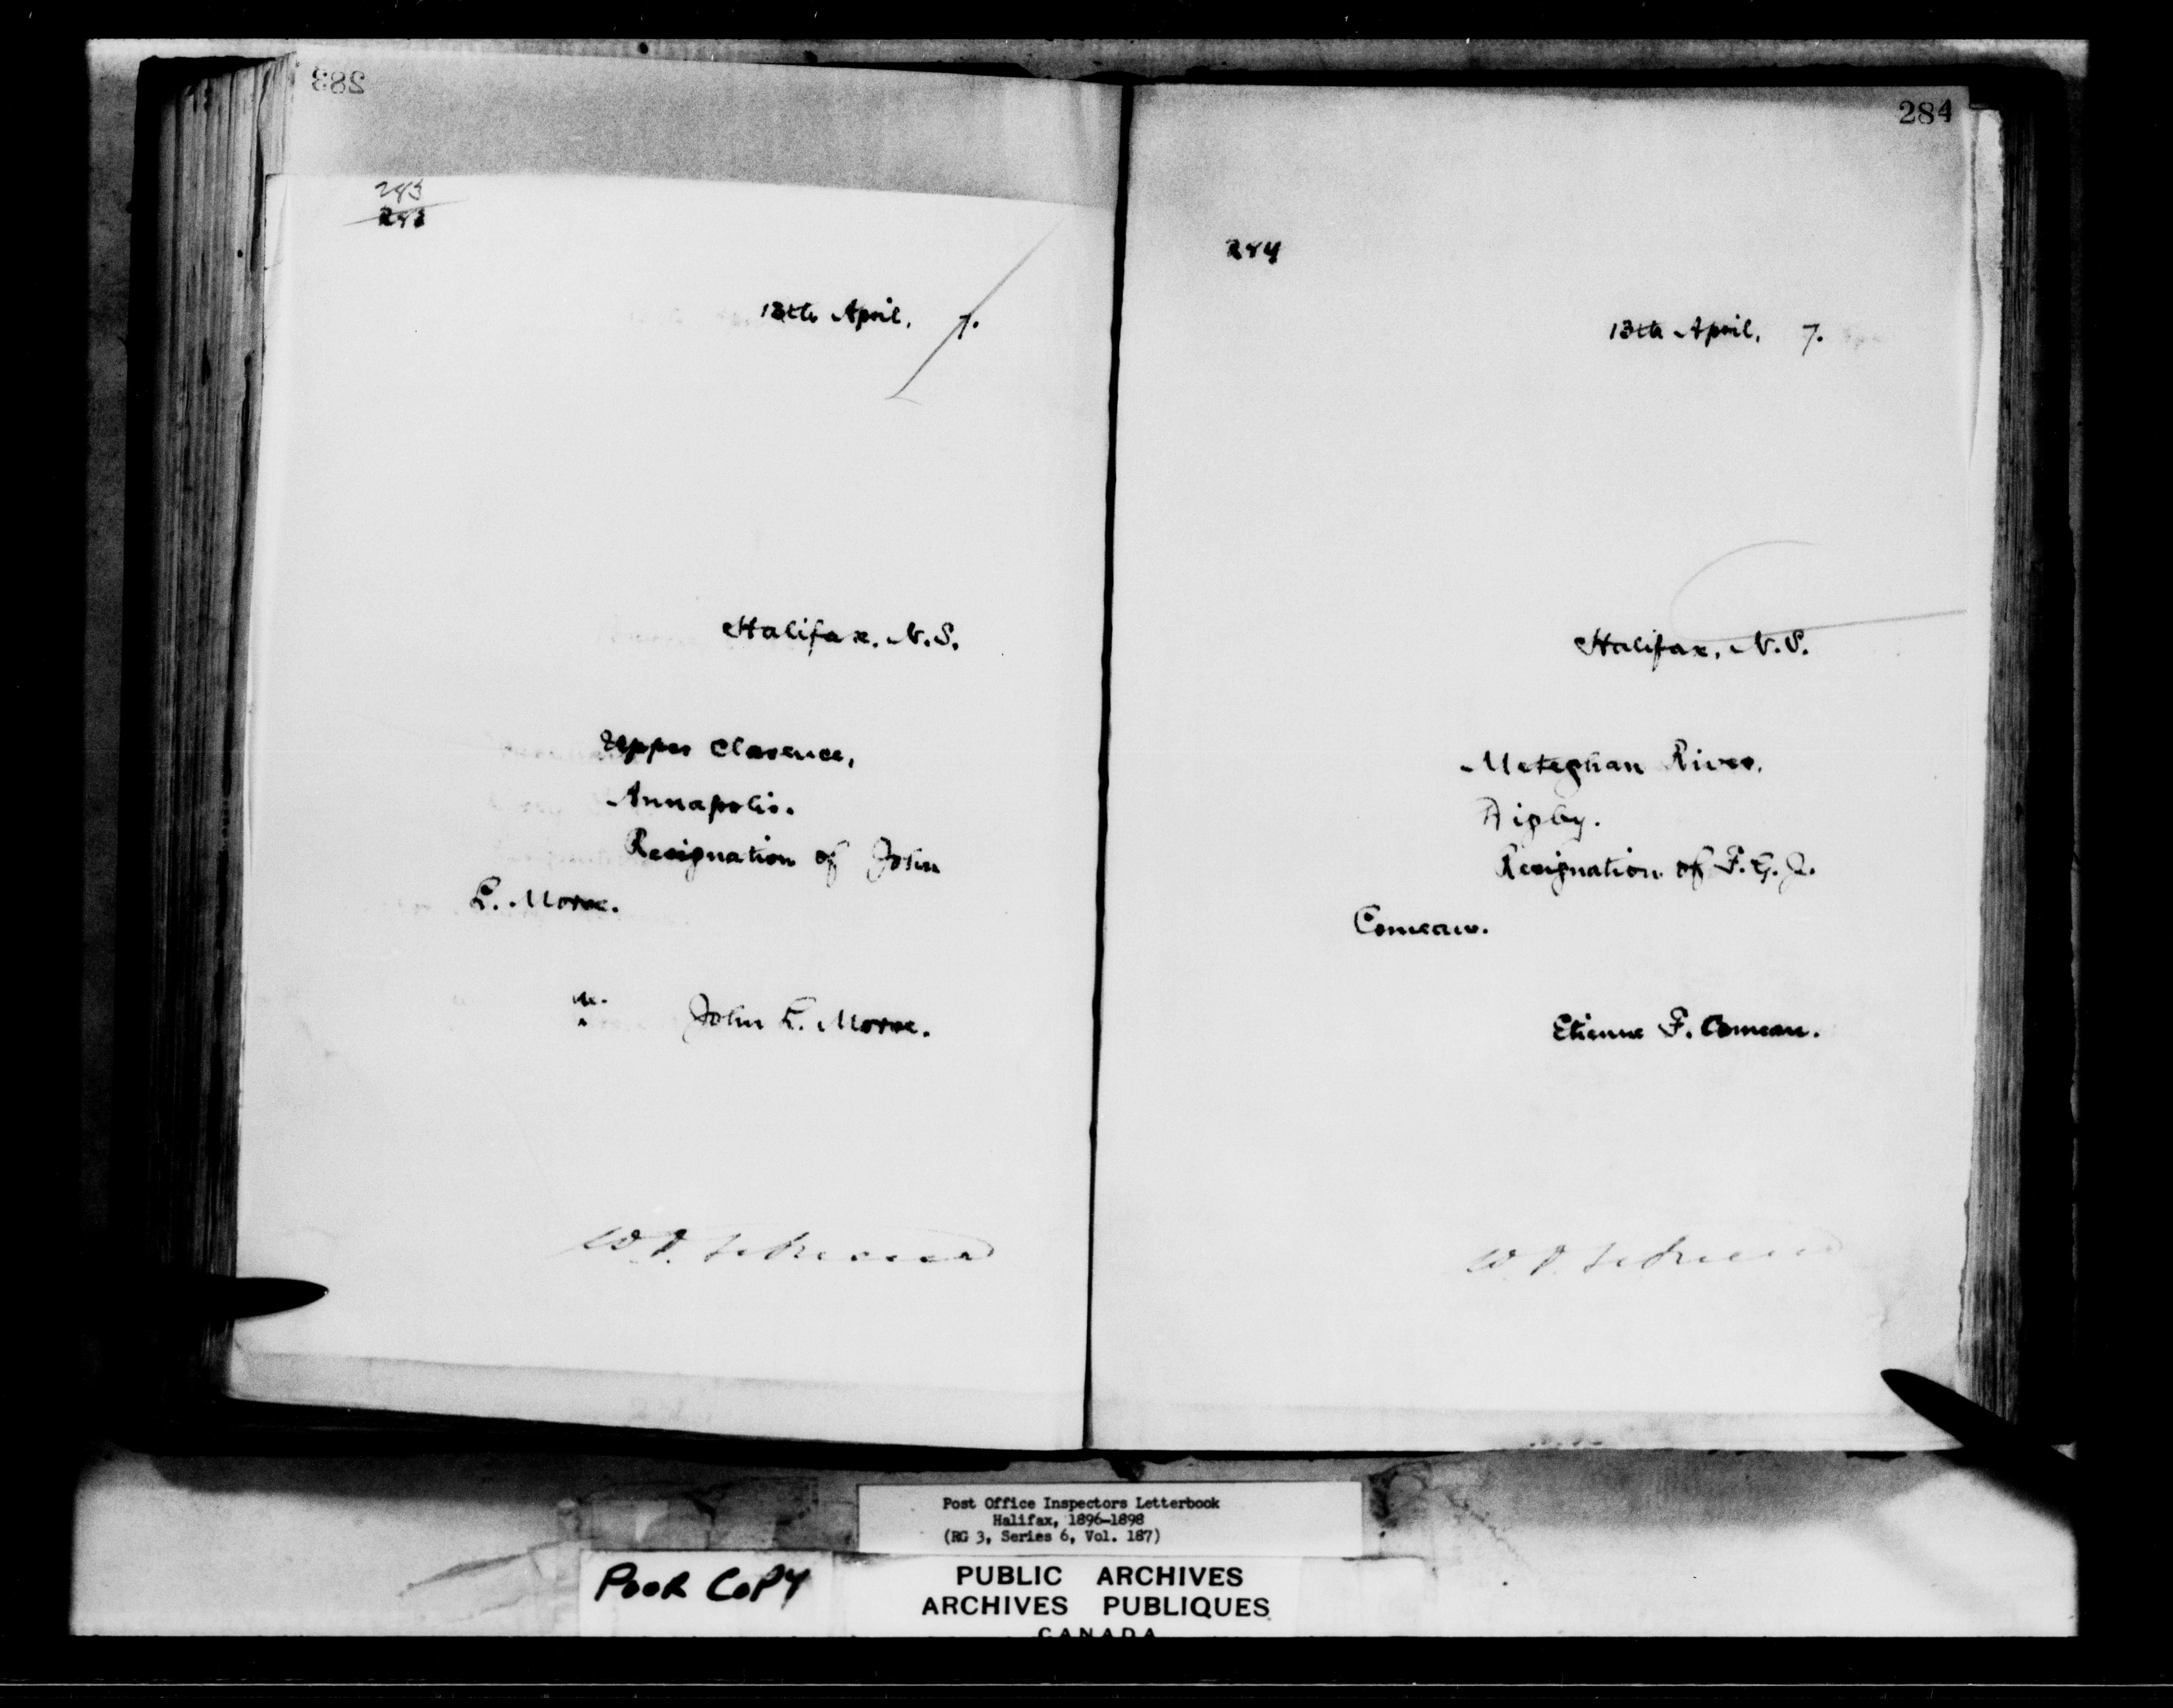 283
283
283
13th April, 7.
Halifax, N.S.
Upper Clarence,
Annapolis.
Resignation of John
L. Morse.
John L. Morse.
284
284
13th April, 7.
Halifax, N.S.
Meteghan River,
Digby.
Resignation of F. G. J.
Comeau.
Etienne F. Comeau.
Post Office Inspectors Letterbook
Halifax, 1896-1898
(RG 3, Series 6, Vol. 187)
POOR COPY
PUBLIC ARCHIVES
ARCHIVES PUBLIQUES
CANADA